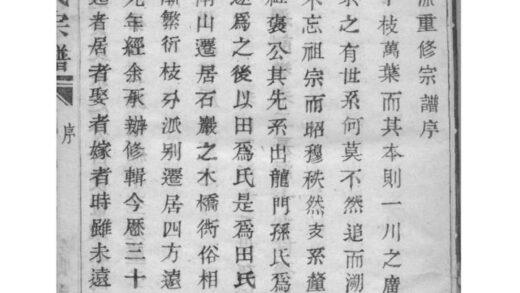 源重修宗譜序
子枝萬葉而其本則一川之廣
系之有世系何莫不然追而溯
不忘祖宗而昭穆秩然支系釐
經褒公其先系出龍門孫氏爲
遂爲之後以田爲氏是爲田氏
南山遷居石巖之木橋衖俗相
漸繁衍枝分派别遷居四方遠
元年經余承辦修輯今曆三十
者居者娶者嫁者時雖未遠
宗譜
序